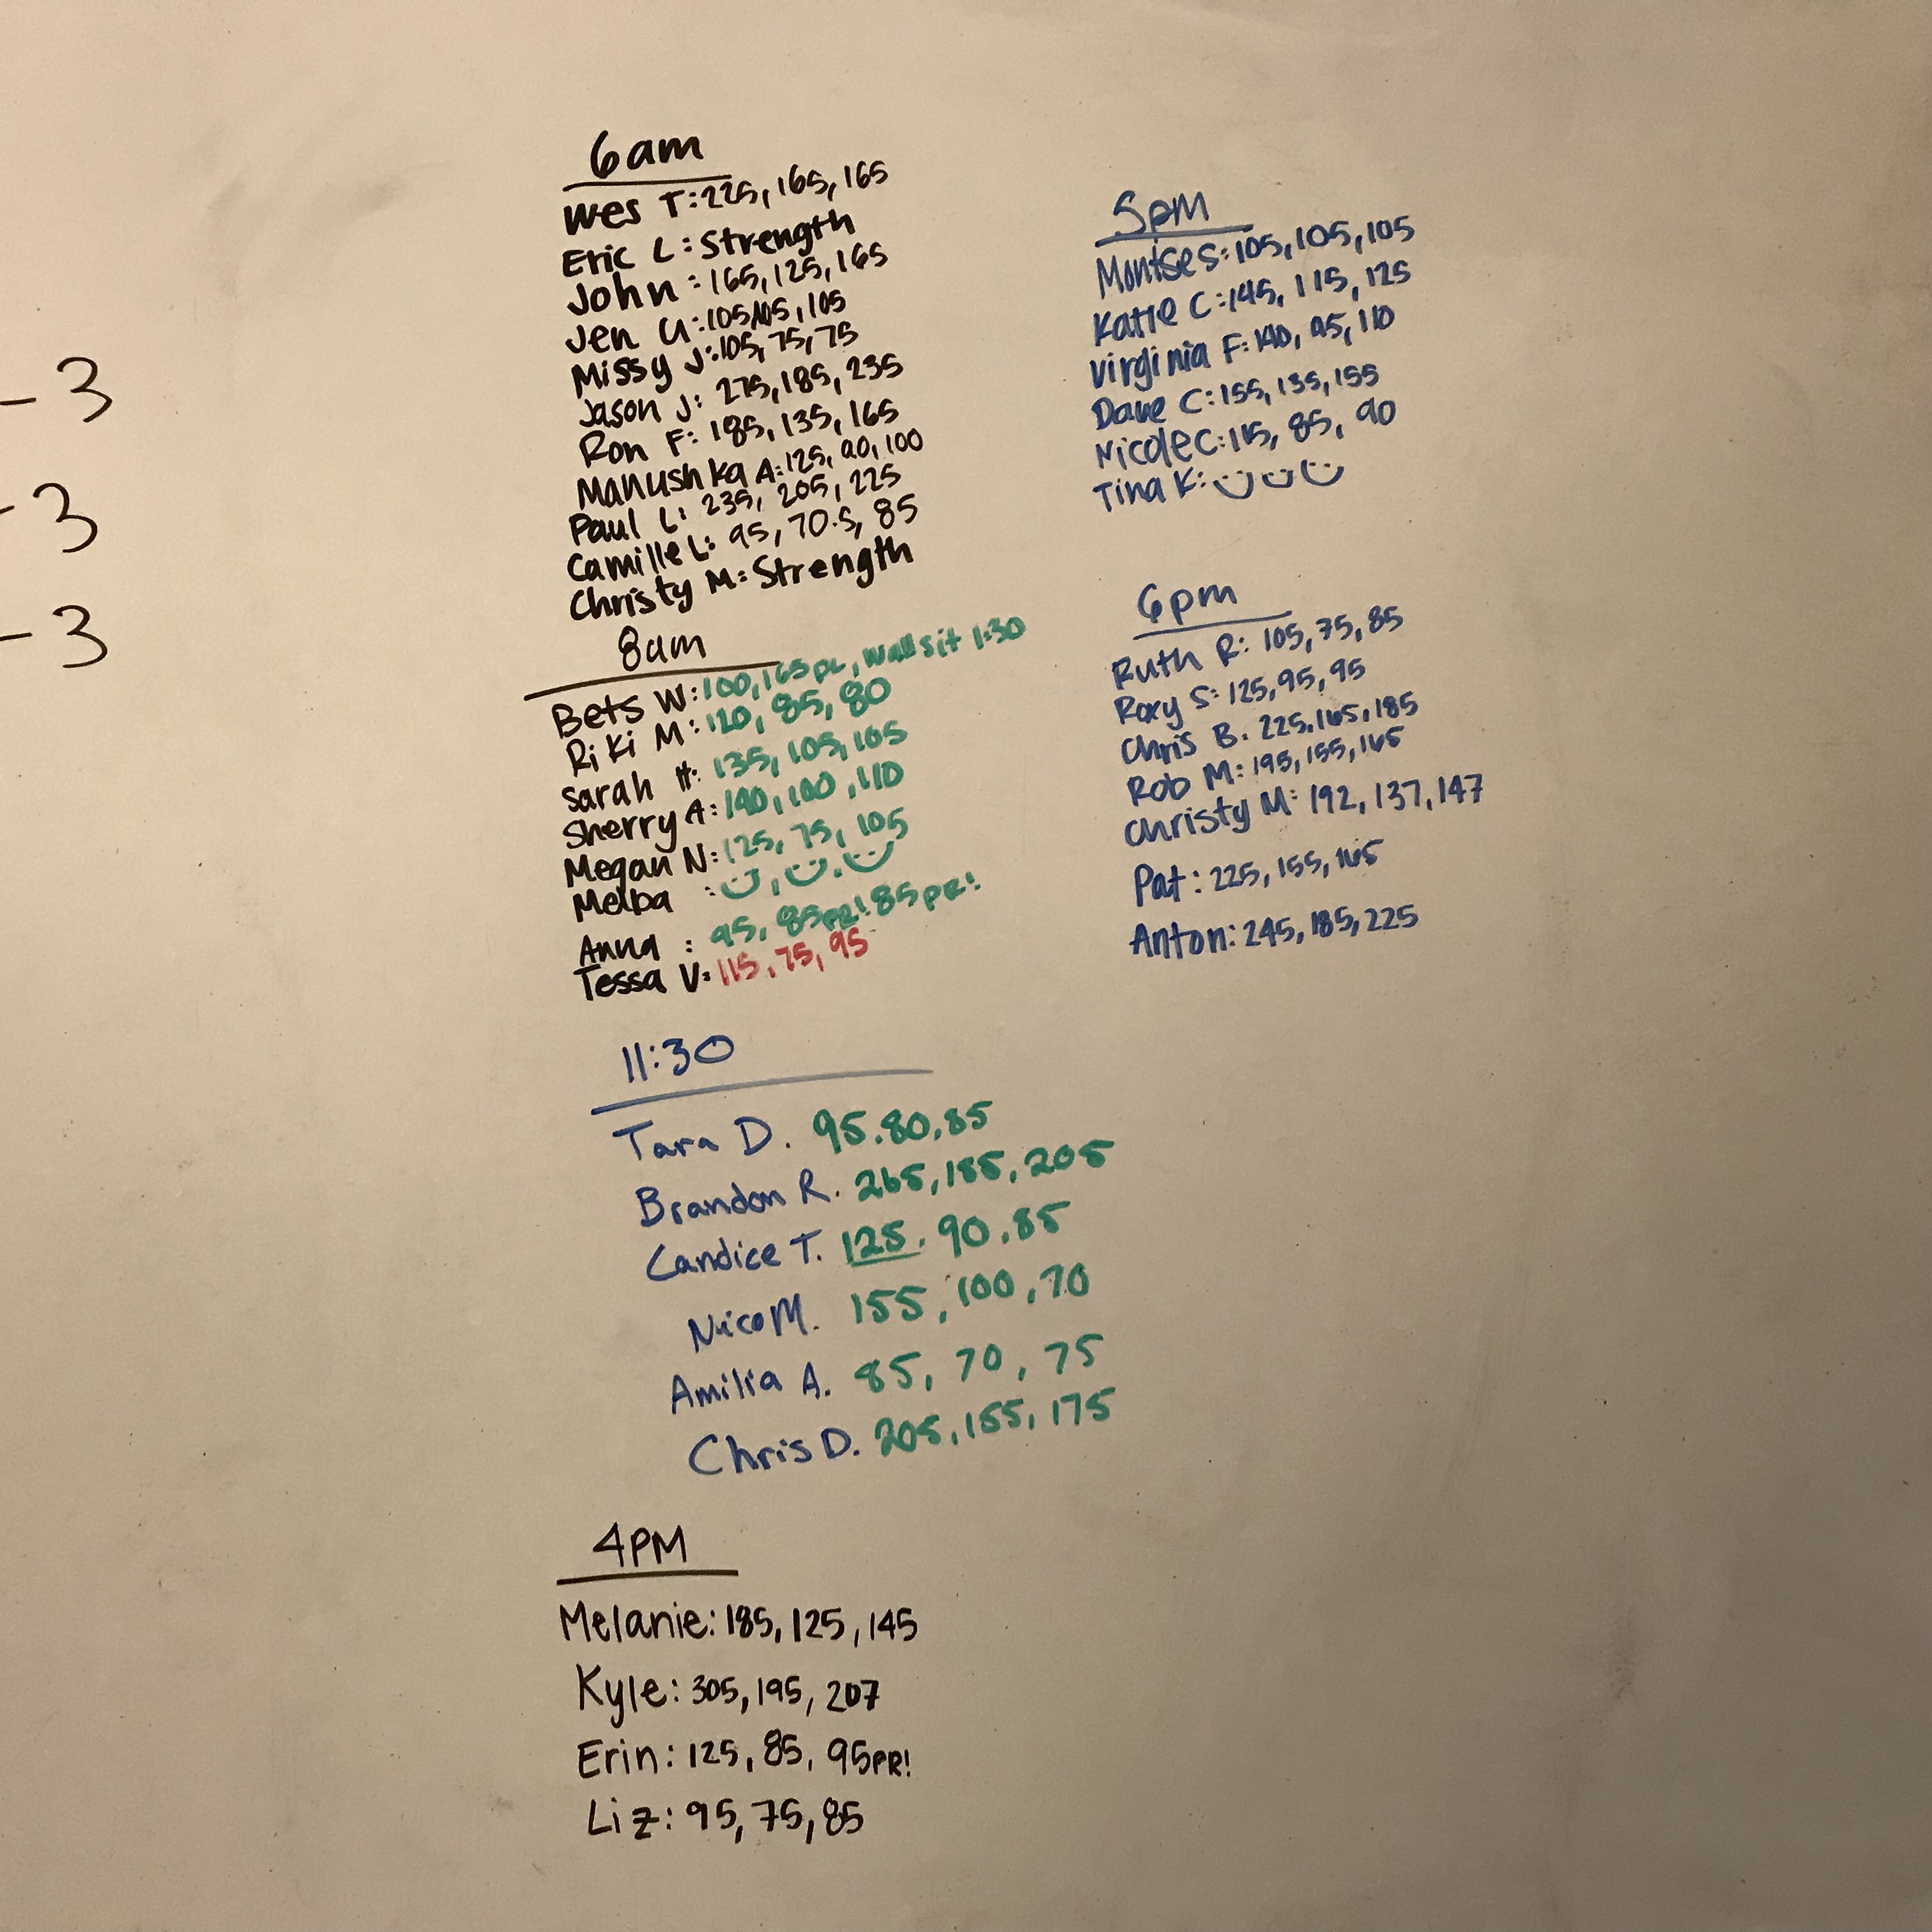 - 3
- 3
- 3
6am
Wes T: 225, 165, 165
Eric L: Strength
John: 165, 125, 165
Jen G: 105, 105, 105
Missy J: 105, 75, 75
Jason J: 275, 185, 235
Ron F: 185, 135, 165
Manushka A: 125, 90, 100
Paul L: 235, 205, 225
Camille L: 95, 70.5, 85
Christy M: Strength
8am
Bets W: 100, 165 , Wall sit 1:30
Riki M: 120, 85, 80
Sarah H: 135, 105, 105
Sherry A: 190, 100, 110
Megan N: 125, 75, 105
Melba :
Anna : 95, 85PR! 85PR!
Tessa V: 115, 75, 95
11:30
Tara D. 95.80.85
Brandon R. 265, 185, 205
Candice T. 125. 90.85
Nico M. 155, 100, 70
Amilia A. 85, 70, 75
Chris D. 205, 155, 175
4PM
Melanie: 185, 125, 145
Kyle: 305, 195, 207
Erin: 125, 85, 95PR!
Liz: 95, 75, 85
5pm
Montse S: 105, 105, 105
Katie C: 145, 115, 125
Virginia F: 140, 95, 110
Dave C: 155, 135, 155
Nicole C: 115, 85, 90
Tina K:
6pm
Ruth R: 105, 75, 85
Roxy S: 125, 95, 95
Chris B. 225, 165, 185
Rob M: 195, 155, 165
Christy M: 192, 137, 147
Pat: 225, 155, 165
Anton: 245, 185, 225